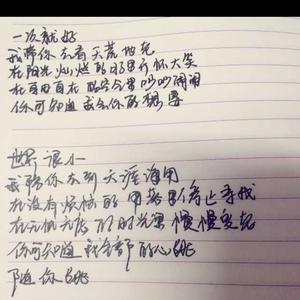 一次就好
我带你去看天荒地老
在阳光灿烂的日子里开怀大笑
在自由自在的空气里吵吵闹闹
你可知道我的想要
世界很小
我带你去到天涯海角
在没有烦恼的角落里停止寻找
在无忧无虑的时光里慢慢变老
你可知道我全部的心跳
随你跳